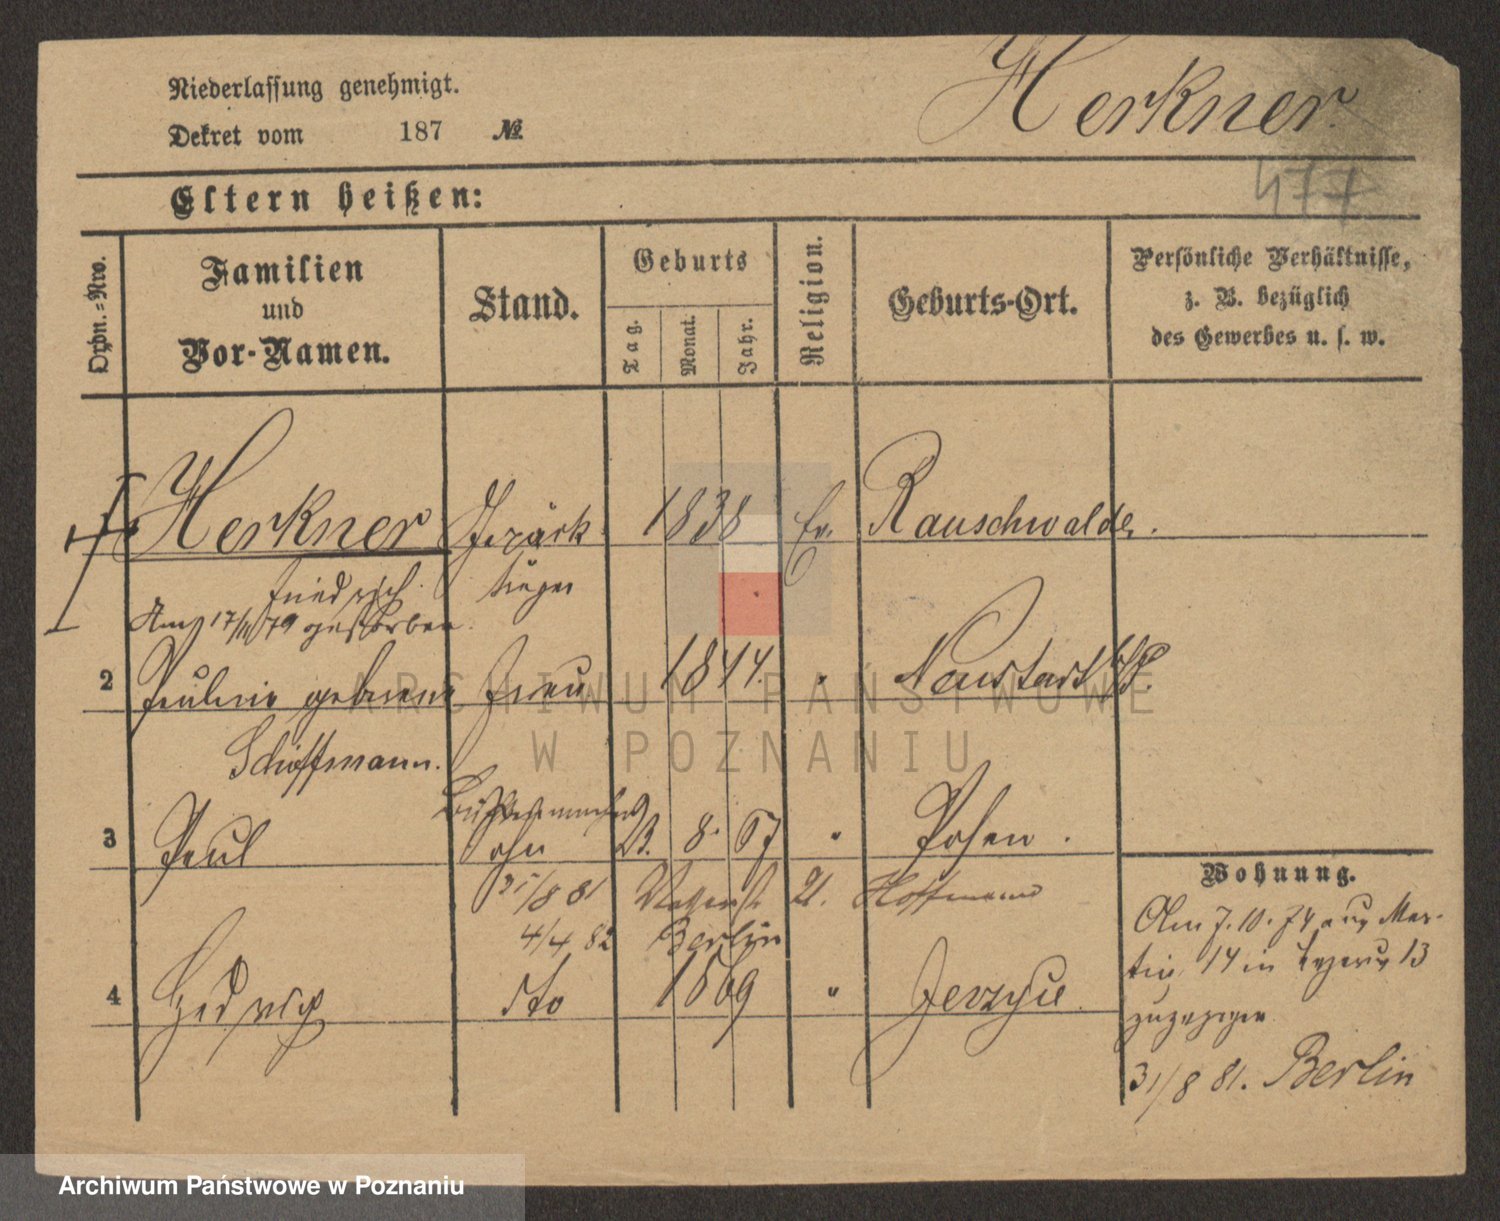 Niederlassung genehmigt.
Herkner.
Dekret vom 187 №
477
Eltern heißen:
Ordn.-Nro.
Familien
und
Vor-Namen.
Stand.
Geburts
Tag.
Monat.
Jahr.
Religion.
Geburts-Ort.
Persönliche Verhältnisse,
z. B. bezüglich
des Gewerbes u. s. w.
Herkner 1838 Ev. Rauschwalde.
Friedrich
Am 17/11 79 gestorben.
2 Pauline geborene Frau 1844. " Neustadt
Schöffmann.
3 Paul 23. 8. 67 " Posen.
31/8 81 21. Hoffmann
4/4 82 Berlin
4 Hedwig dto 1869 " Jerzyce
Wohnung.
Am 7. 10. 74 aus Mar-
tin 14 in 13
zugezogen
31/8 81. Berlin
ARCHIWUM PAŃSTWOWE
W POZNANIU
Archiwum Państwowe w Poznaniu